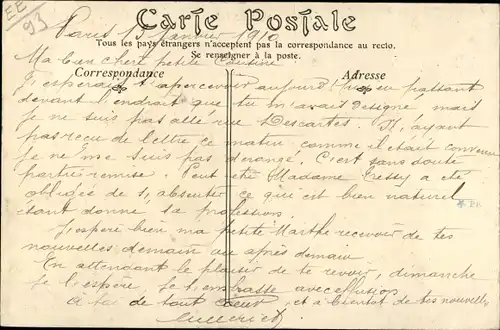 EE
93
Carte Postale
Paris 13 Janvier 1910
Tous les pays étrangers n'acceptent pas la correspondance au recto.
Se renseigner à la poste.
Correspondance
Adresse
Ma bien chère petite Cousine
J'esperais t'apercevoir aujourd'hui en passant
devant l'endroit que tu m'avais designé mais
je ne suis pas allé rue Descartes. N'ayant
pas recu de lettre ce matin comme il était convenu
je ne me suis pas dérangé. C'est sans doute
partie remise. Peut etre Madame Tressy a été
obligée de s'absenter ce qui est bien naturel
étant donné sa profession.
J'espère bien ma petite Marthe recevoir de tes
nouvelles demain ou après demain
En attendant le plaisir de te revoir, dimanche
je l'espère, je t'embrasse avec effusion
A toi de tout cœur, et à bientot de tes nouvelles